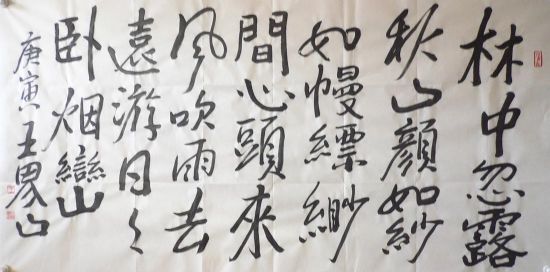 林中忽露
秋山顔如紗
如幔縹緲
間心頭來
風吹雨去
遠游日々
卧烟巒山
庚寅王界山